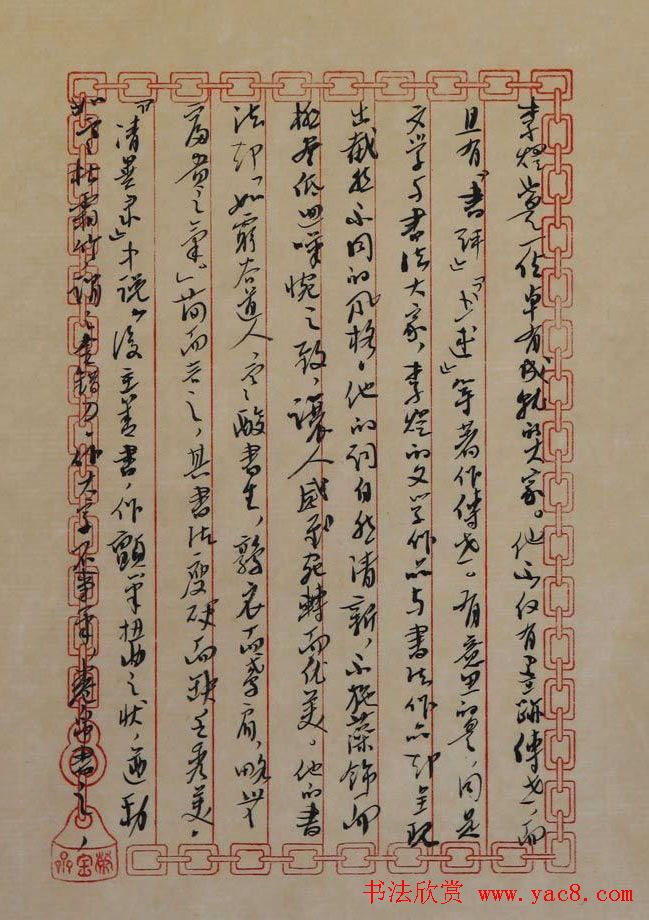 李煜党一位卓有成就的大家。他不仅有墨跡傳世，而
且有『書評』『书述』等著作傅世。有意思的是，同是
文学与書法大家，李煜的文学作品与書法作品却呈现
出截然不同的风格。他的词自然清新，不施藻饰而
极尽低迴嘆惋之致，讓人感到宛轉而优美。他的書
法却「如窮谷道人，寒酸書生，鹑衣而聳肩，略无
富贵之氣」。简而言之，其書法瘦硬而缺乏秀美。
『清異录』中说，後主善書，作顫筆扭曲之状，遒勁
如寒松霜竹，謂之金错刀。作大字不事筆，卷帛書之，
书法欣赏 www.yac8.com